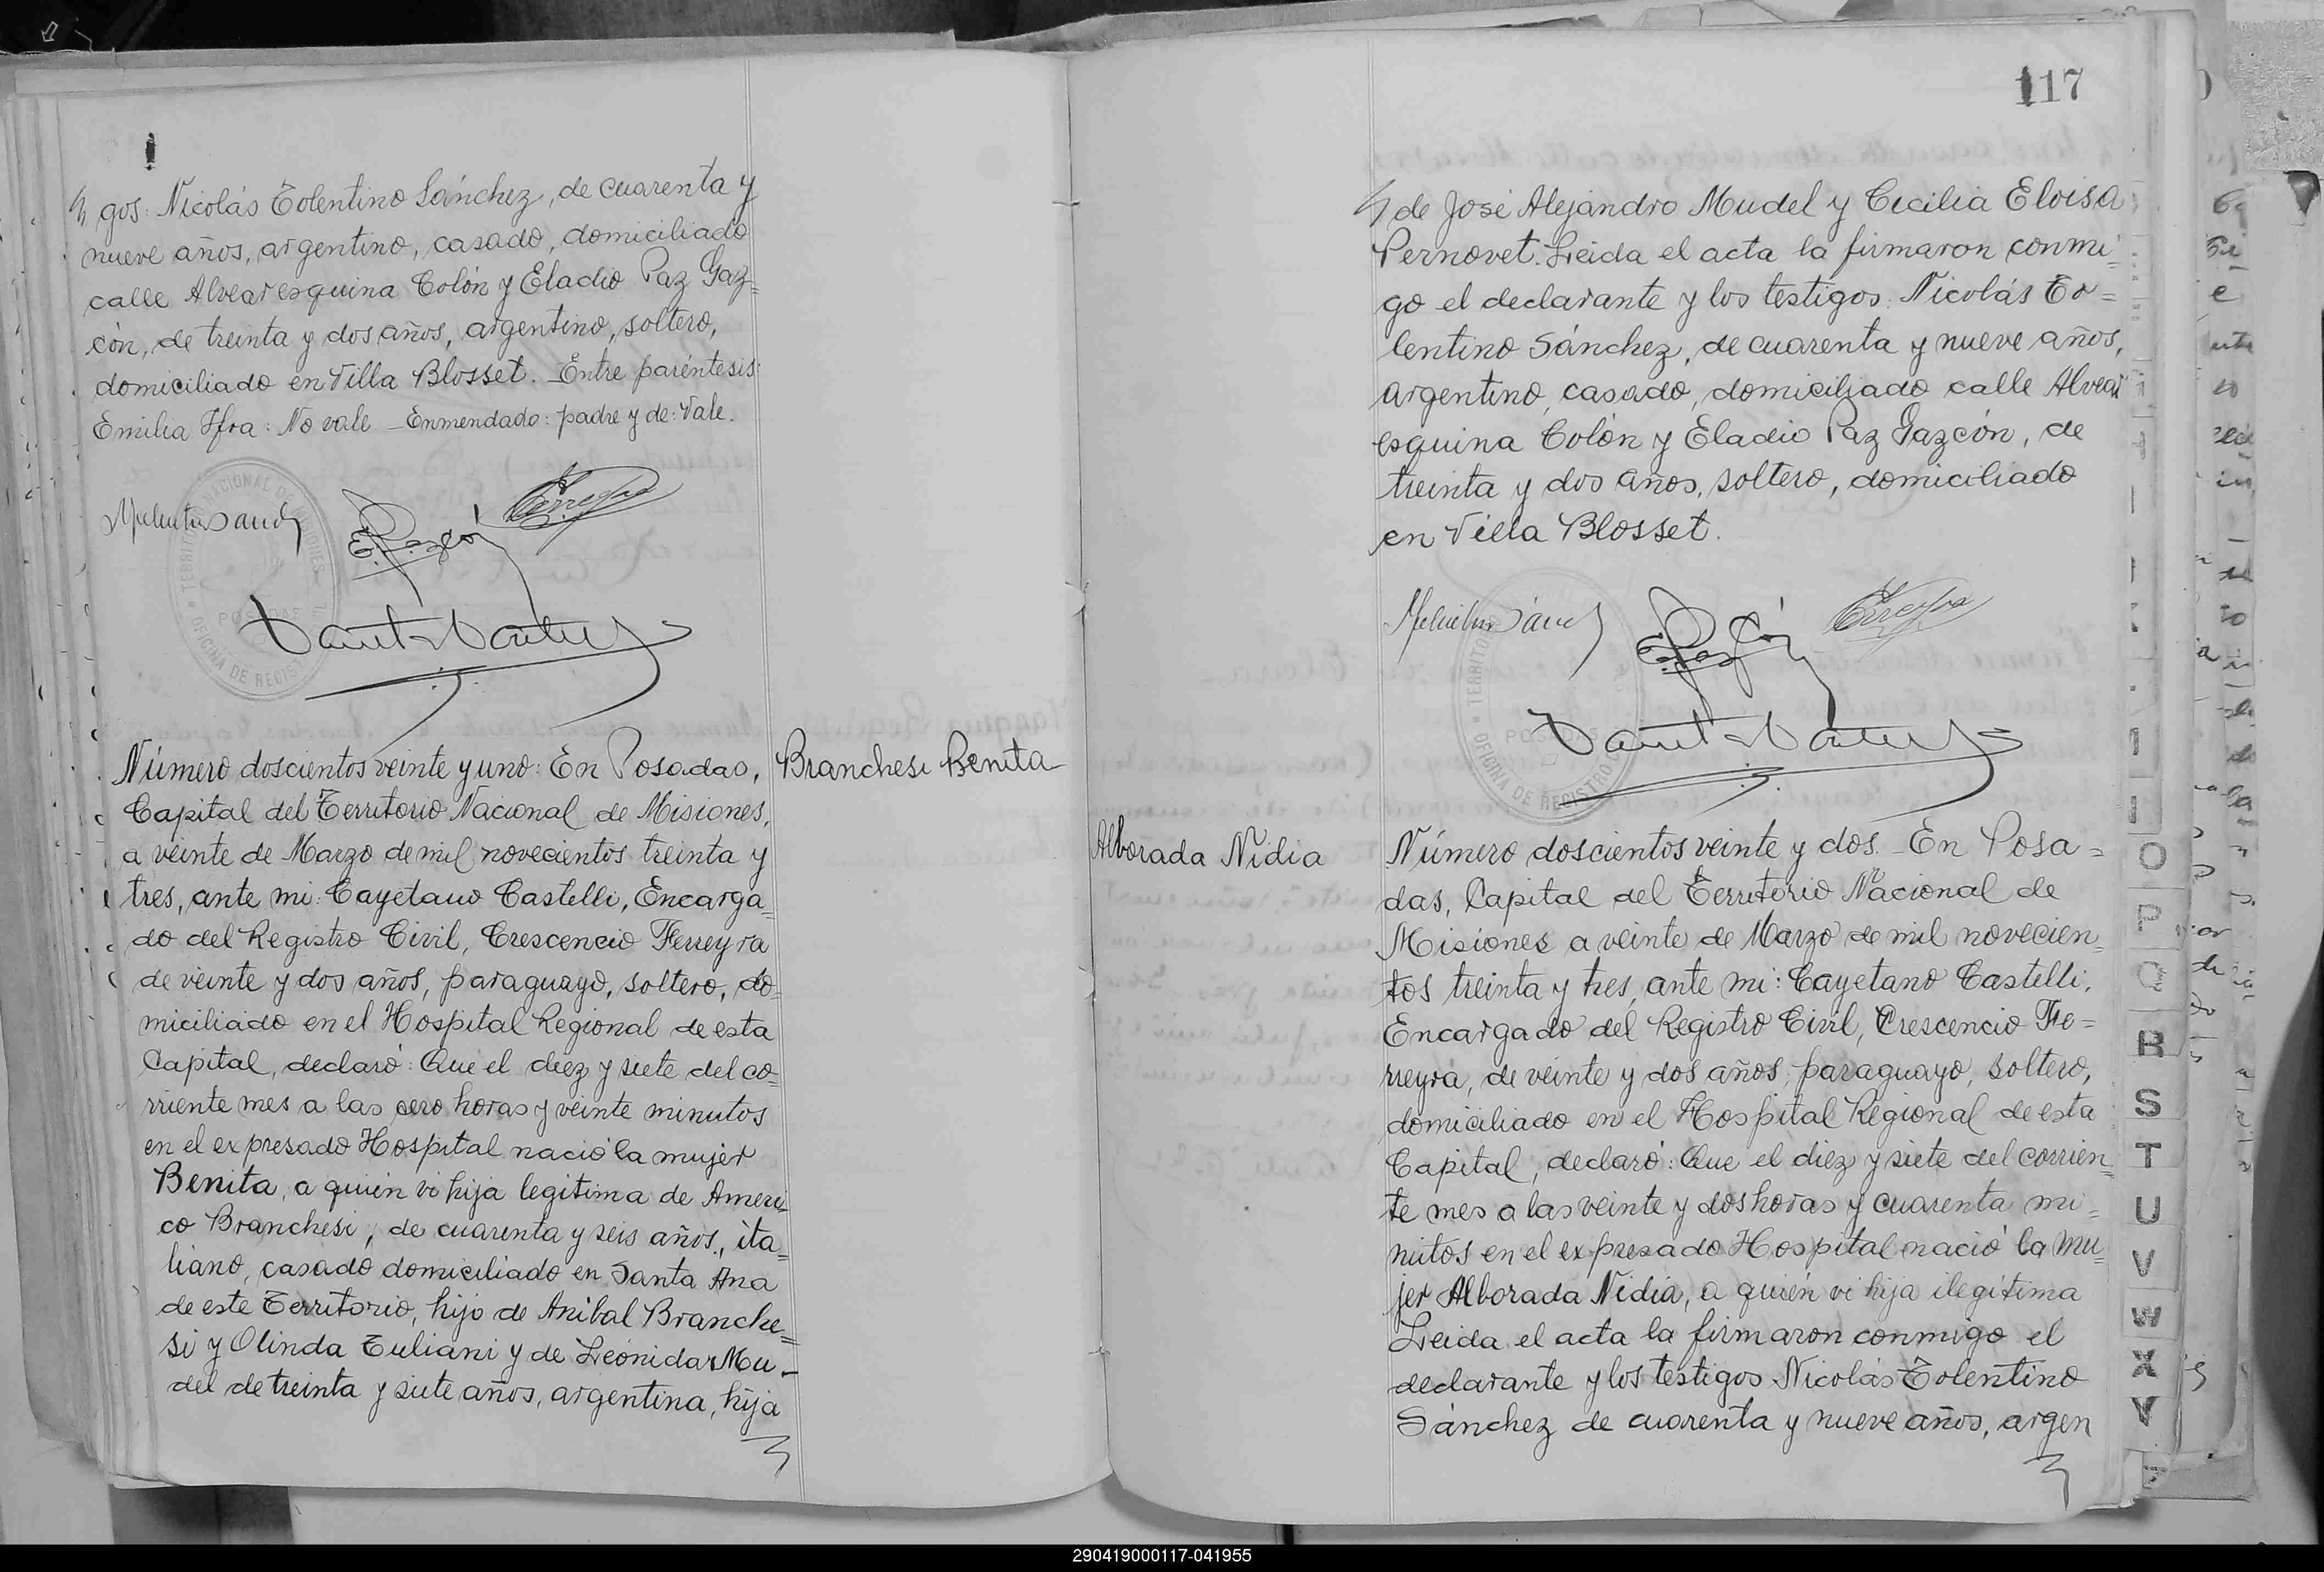 gos: Nicolás Tolentino Sánchez, de cuarenta y
nueve años, argentino, casado, domiciliado
calle Alvear esquina Colón y Eladio Paz Gaz=
cón, de treinta y dos años, argentino, soltero,
domiciliado en Villa Blosset. Entre paréntesis:
Emilia Ifra: No vale - Enmendado: padre y de: Vale.
TERRITORIO NACIONAL DE MISIONES
POSADAS
OFICINA DE REGISTRO CIVIL
Número doscientos veinte y uno: En Posadas,
Capital del Territorio Nacional de Misiones,
a veinte de Marzo de mil novecientos treinta y
tres, ante mi: Cayetano Castelli, Encarga=
do del Registro Civil, Crescencio Ferreyra
de veinte y dos años, paraguayo, soltero, do=
miciliado en el Hospital Regional de esta
Capital, declaró: Que el diez y siete del co=
rriente mes a las cero horas y veinte minutos
en el expresado Hospital nació la mujer
Benita, a quien vi hija legitima de Ameri=
co Branchesi, de cuarenta y seis años, ita=
liano, casado domiciliado en Santa Ana
de este Territorio, hijo de Anibal Branche=
si y Olinda Tuliani y de Leonidas Mu-
del de treinta y siete años, argentina, hija
Branchesi Benita
117
de José Alejandro Mudel y Cecilia Eloisa
Pernovet. Leida el acta la firmaron conmi=
go el declarante y los testigos: Nicolás To=
lentino Sánchez, de cuarenta y nueve años,
argentino, casado, domiciliado calle Alvear
esquina Colón y Eladio Paz Gazcón, de
treinta y dos años, soltero, domiciliado
en Villa Blosset.
POSADAS
OFICINA DE REGISTRO
Alborada Nidia
Número doscientos veinte y dos. - En Posa=
das, Capital del Territorio Nacional de
Misiones a veinte de Marzo de mil novecien=
tos treinta y tres, ante mi: Cayetano Castelli,
Encargado del Registro Civil, Crescencio Fe=
rreyra, de veinte y dos años, paraguayo, soltero,
domiciliado en el Hospital Regional de esta
Capital, declaró: Que el diez y siete del corrien=
te mes a las veinte y dos horas y cuarenta mi=
nutos en el expresado Hospital nació la mu=
jer Alborada Nidia, a quién vi hija ilegitima
Leida el acta la firmaron conmigo el
declarante y los testigos Nicolás Tolentino
Sánchez de cuarenta y nueve años, argen
O
P
Q
R
S
T
U
V
W
X
Y
Z
290419000117-041955